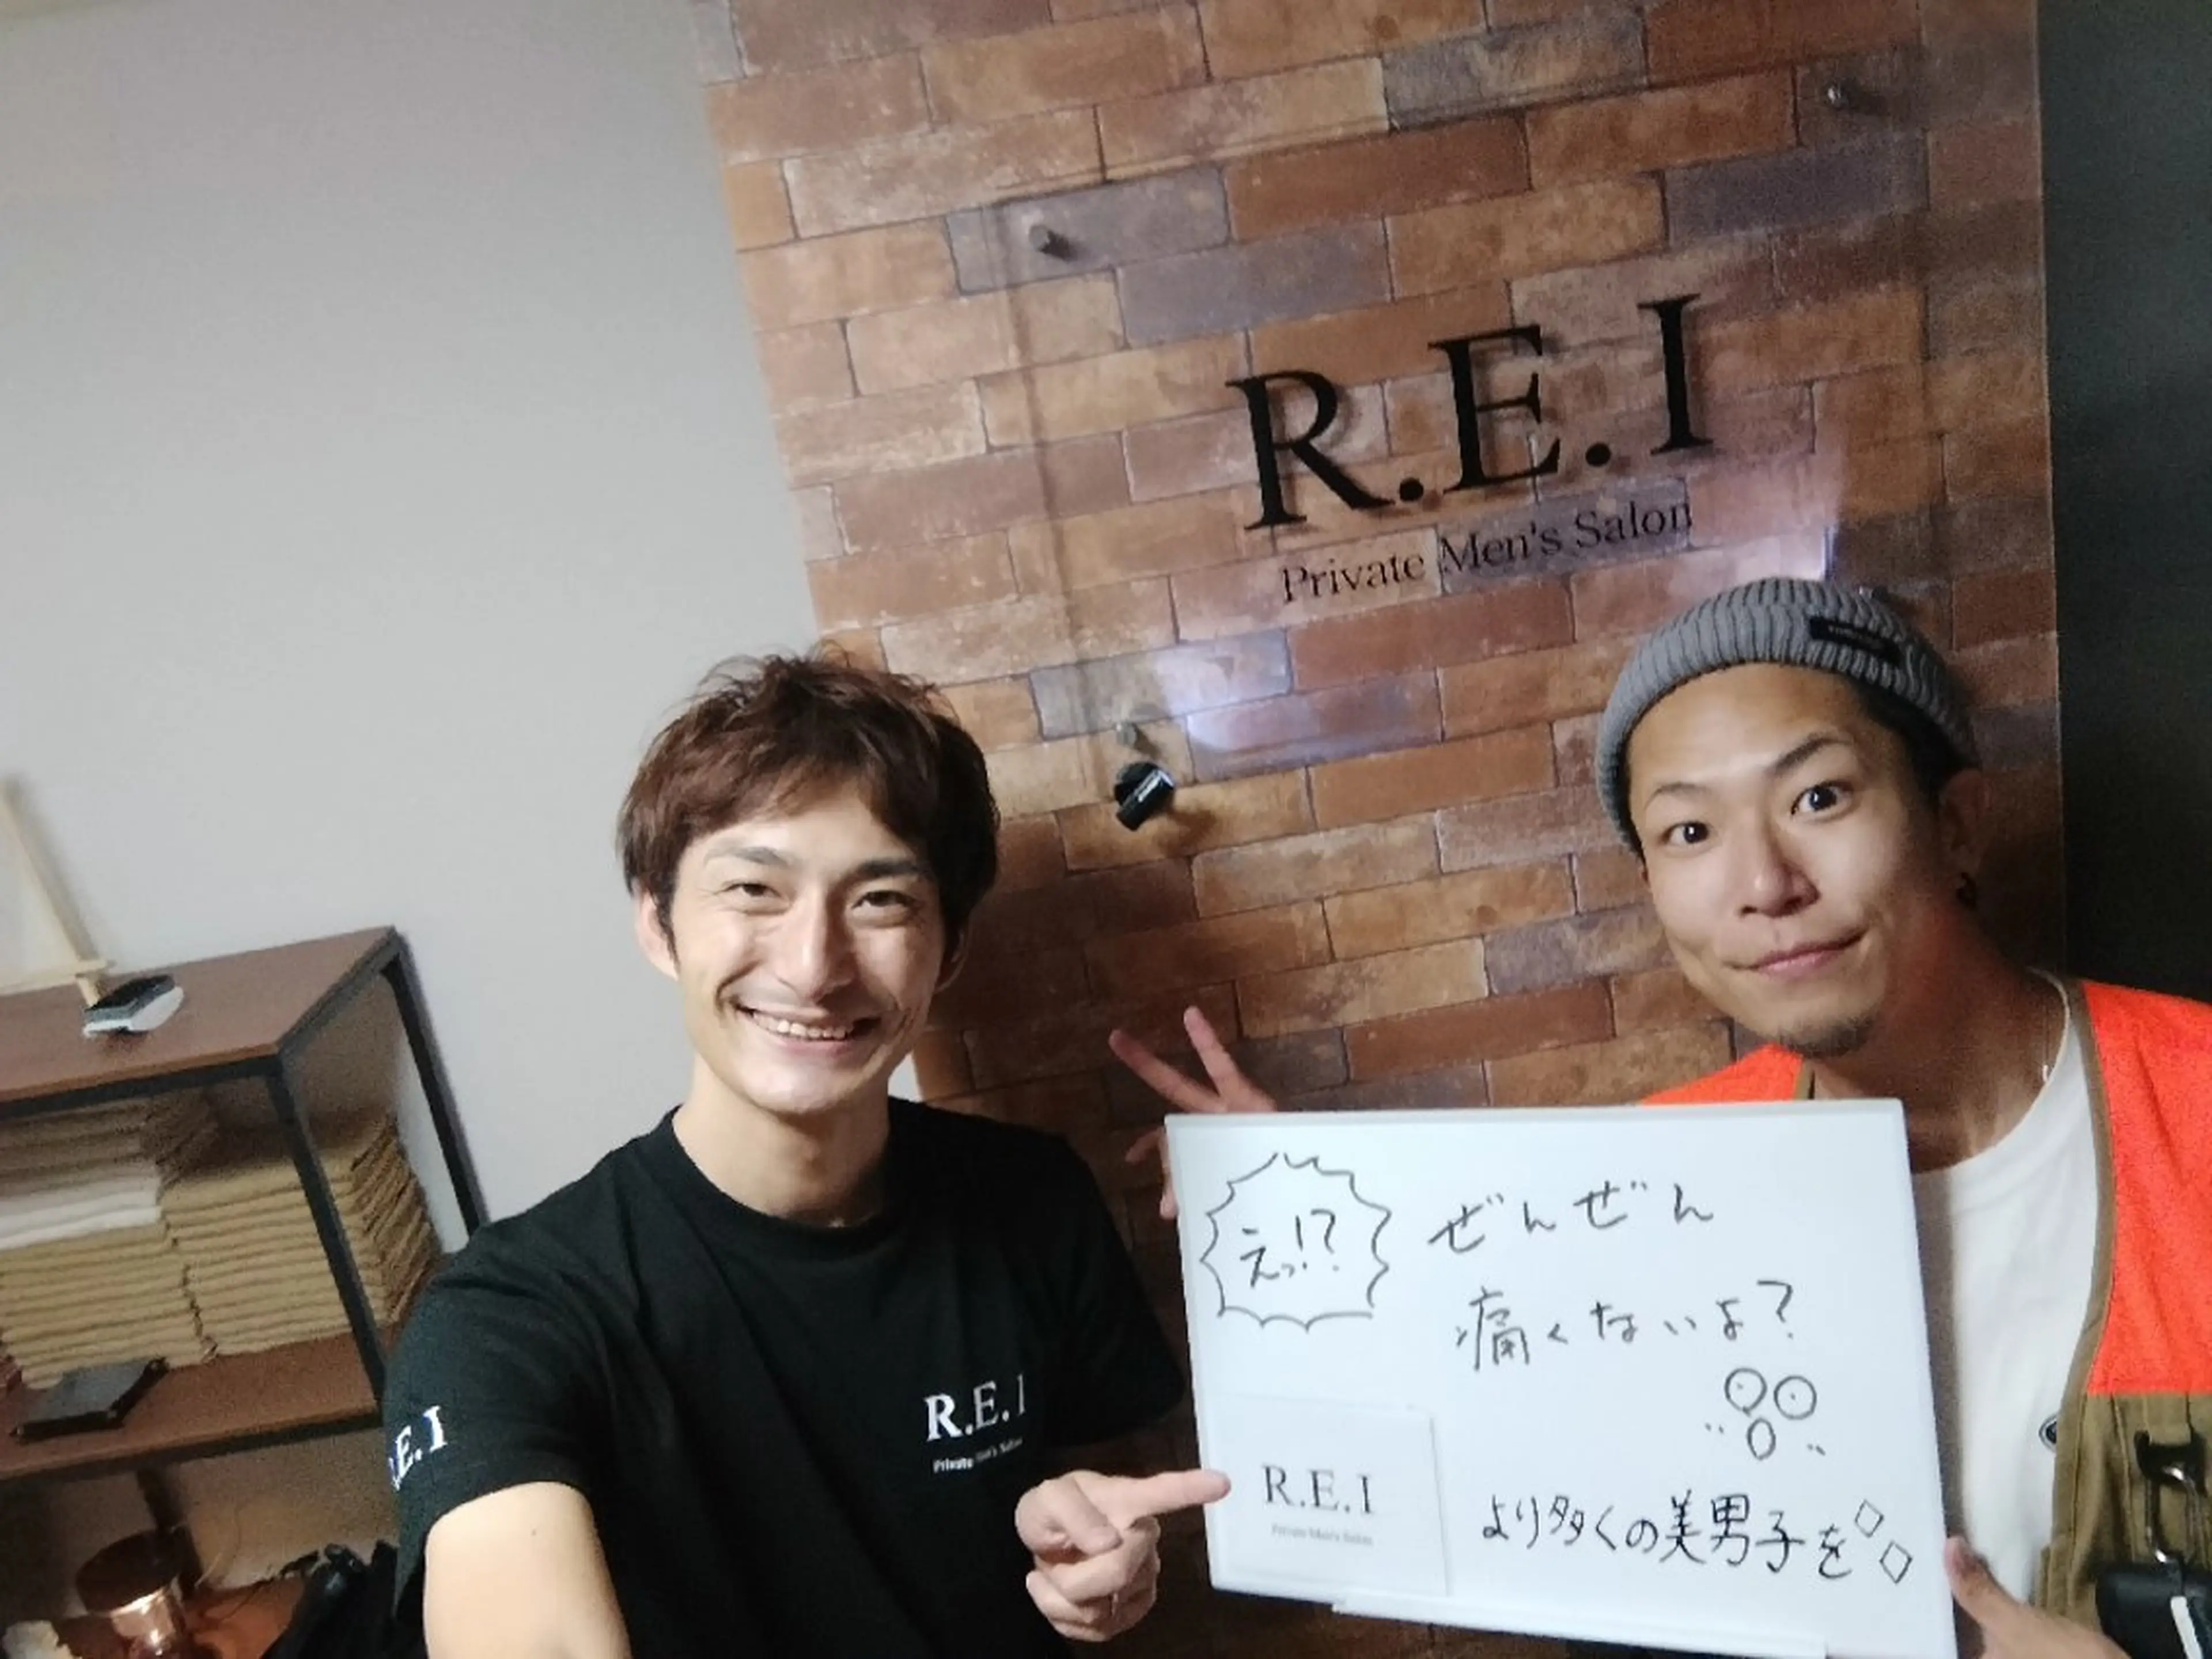 R.E.I
Private Men's Salon
えっ!?
ぜんぜん
痛くないよ?
R.E.I
Private Men's Salon
より多くの美男子を
R.E.I
Private Men's Salon
E.I